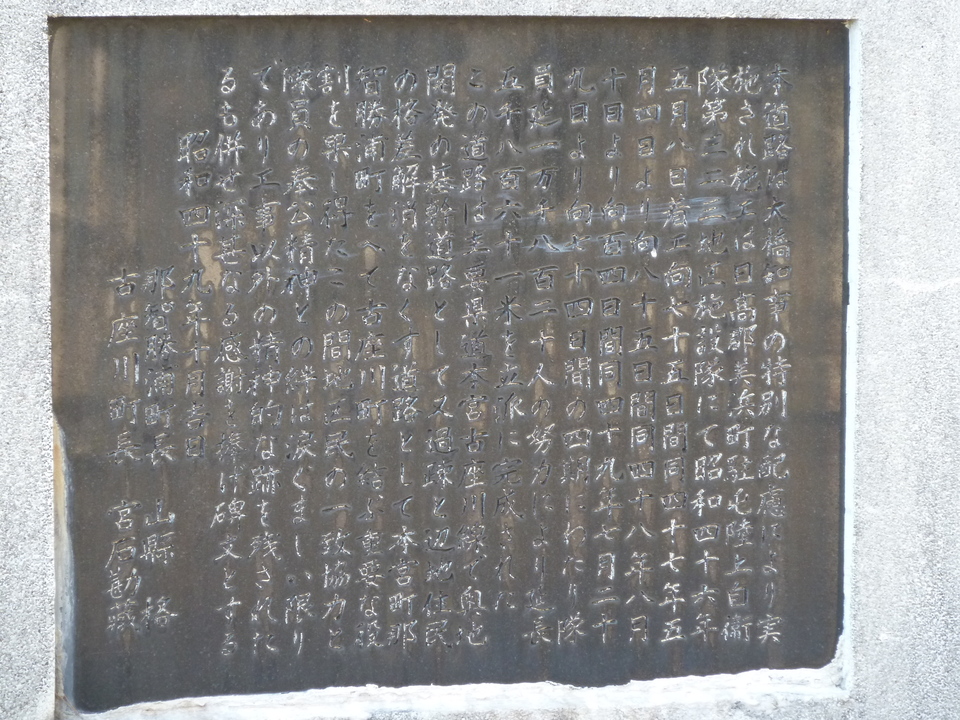 本道路は大橋知事の特別な配慮により実
施され施工は日高郡美浜町駐屯陸上自衛
隊第三二三地区施設隊にて昭和四十六年
五月八日着工向七十五日間同四十七年五
月四日より向八十五日間同四十八年八月
十日より向百四日間同四十九年七月二十
九日より向七十四日間の四期にわたり隊
員延一万千八百二十人の努力により延長
五千八百六十一米を立派に完成された
この道路は主要県道本宮古座川線で奥地
開発の基幹道路として又過疎と辺地住民
の格差解消となくす道路として本宮町那
智勝浦町をへて古座川町を結ぶ重要な役
割を果し得たこの間地区民の一致協力と
隊員の奉公精神との絆は涙ぐましい限り
であり工事以外の精神的な跡を残された
るも併せ深甚なる感謝を捧げ碑文とする
昭和四十九年十月吉日
那智勝浦町長 山縣
古座川町長 宮后勘蔵